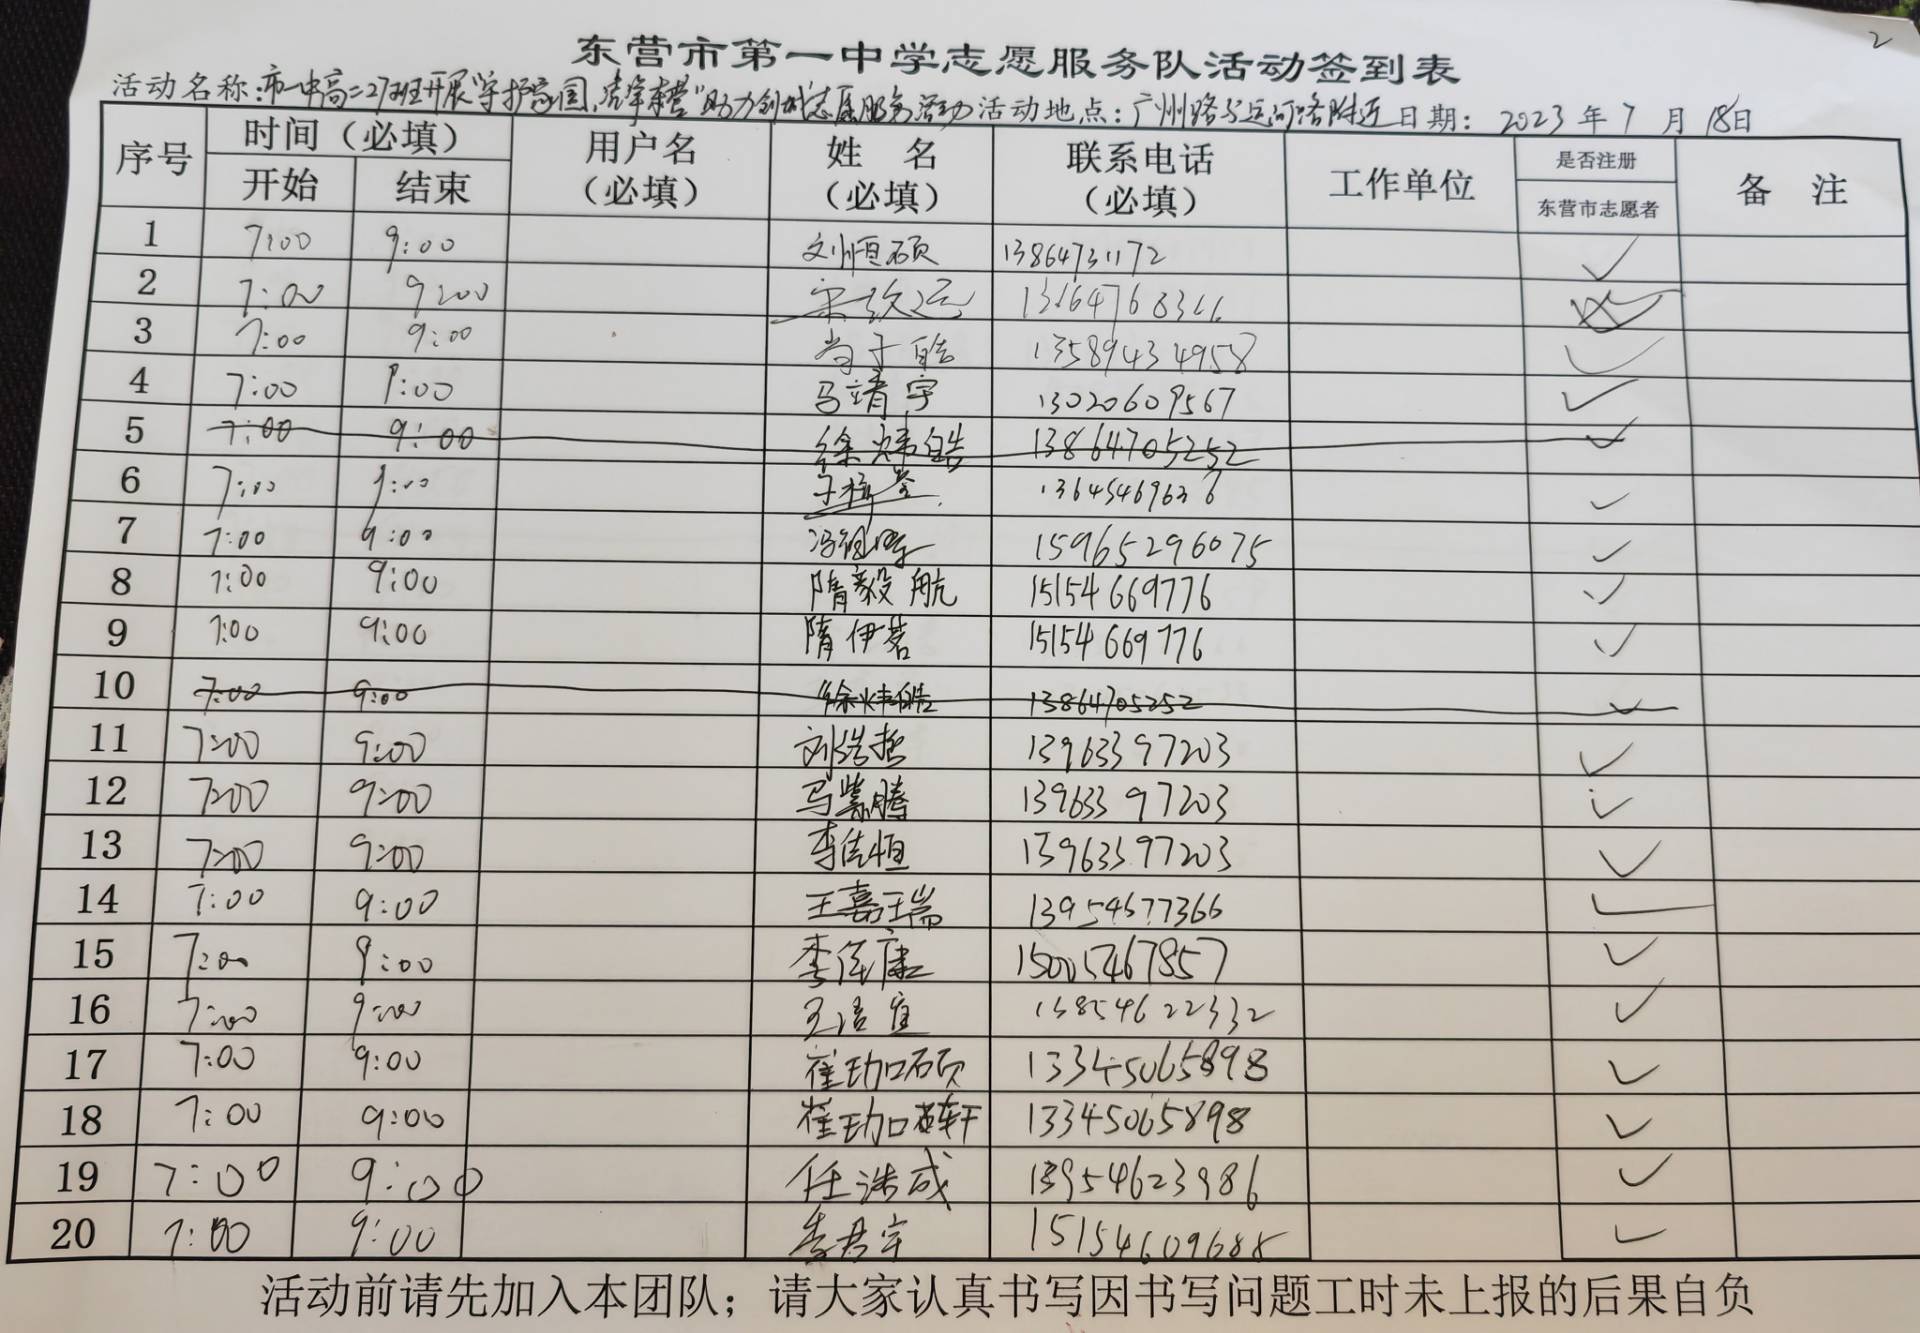 2
东营市第一中学志愿服务队活动签到表
活动名称:市一中高二27班开展"学护家国,亮军东营"助力创城志愿服务活动 活动地点:广州路与运河路附近 日期: 2023年7月18日
序号 时间(必填) 用户名(必填) 姓名(必填) 联系电话(必填) 工作单位 是否注册 备注
开始 结束 东营市志愿者
1 7:00 9:00 刘恒硕 13864731172 ✓
2 7:00 9:00 ✓
3 7:00 9:00 尚于皓 13589434958 ✓
4 7:00 9:00 马靖宇 13020609567 ✓
5 7:00 9:00 徐炜皓 13864705252 ✓
6 7:00 9:00 ✓
7 7:00 9:00 15965296075 ✓
8 7:00 9:00 隋毅航 15154669776 ✓
9 7:00 9:00 隋伊茗 15154669776 ✓
10 7:00 9:00 徐炜皓 13864705252 ✓
11 7:00 9:00 刘浩哲 13963397203 ✓
12 7:00 9:00 马紫腾 13963397203 ✓
13 7:00 9:00 李佳恒 13963397203 ✓
14 7:00 9:00 王嘉瑞 13954677366 ✓
15 7:00 9:00 15005467857 ✓
16 7:00 9:00 13854622332 ✓
17 7:00 9:00 崔珈硕 13345065898 ✓
18 7:00 9:00 崔珈轩 13345065898 ✓
19 7:00 9:00 任浩成 13954623986 ✓
20 7:00 9:00 李君宇 15154609688 ✓
活动前请先加入本团队;请大家认真书写因书写问题工时未上报的后果自负